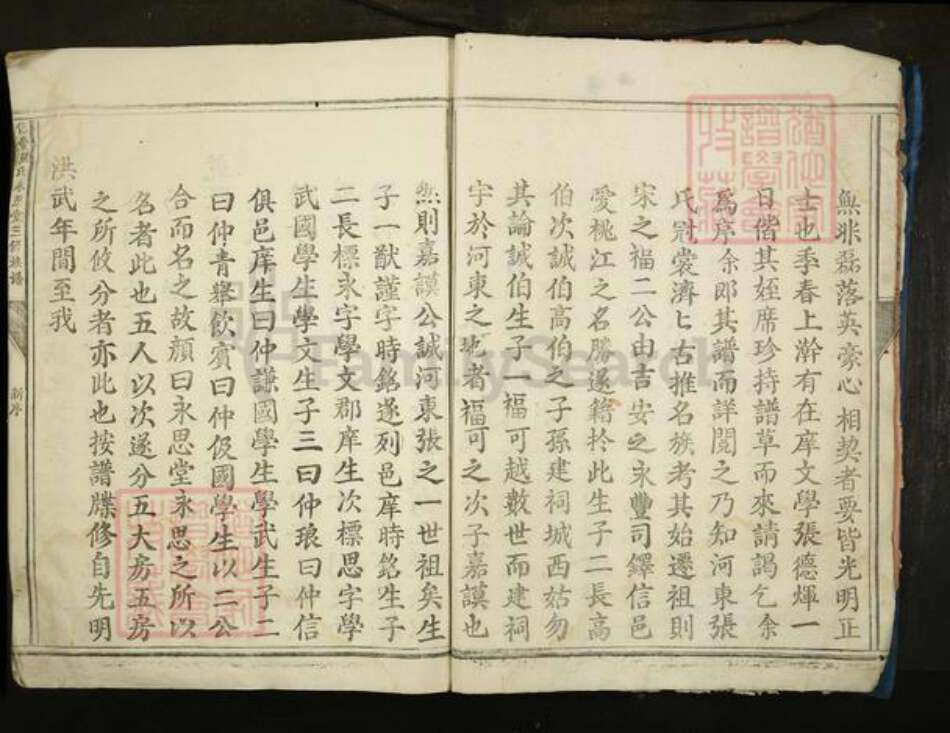 無非磊落英豪心相契者要皆光明正
士也季春上澣有在庠文學張德煇一
日偕其姪席珍持譜草而來請謁乞余
為序余即其譜而詳閱之乃知河東張
氏冠裳濟匕古推名族考其始遷祖則
宋之福二公由吉安之永豐司鐸信邑
愛桃江之名勝遂籍扵此生子二長高
伯次誠伯高伯之子孫建祠城西姑勿
其論誠伯生子一福可越數世而建祠
宇於河東之地者福可之次子嘉謨也
然則嘉謨公誠河東張之一世祖矣生
子一猷謹字時銘遂列邑庠時銘生子
二長標永字學文郡庠生次標思字學
武國學生學文生子三曰仲琅曰仲信
俱邑庠生曰仲謙國學生學武生子二
曰仲青舉飲賓曰仲伋國學生以二公
合而名之故顏曰永思堂永思之所以
名者此也五人以次遂分五大房五房
之所攸分者亦此也按譜牒修自先明
洪武年間至我
氏永思堂三修族譜
新序
FamilySearch